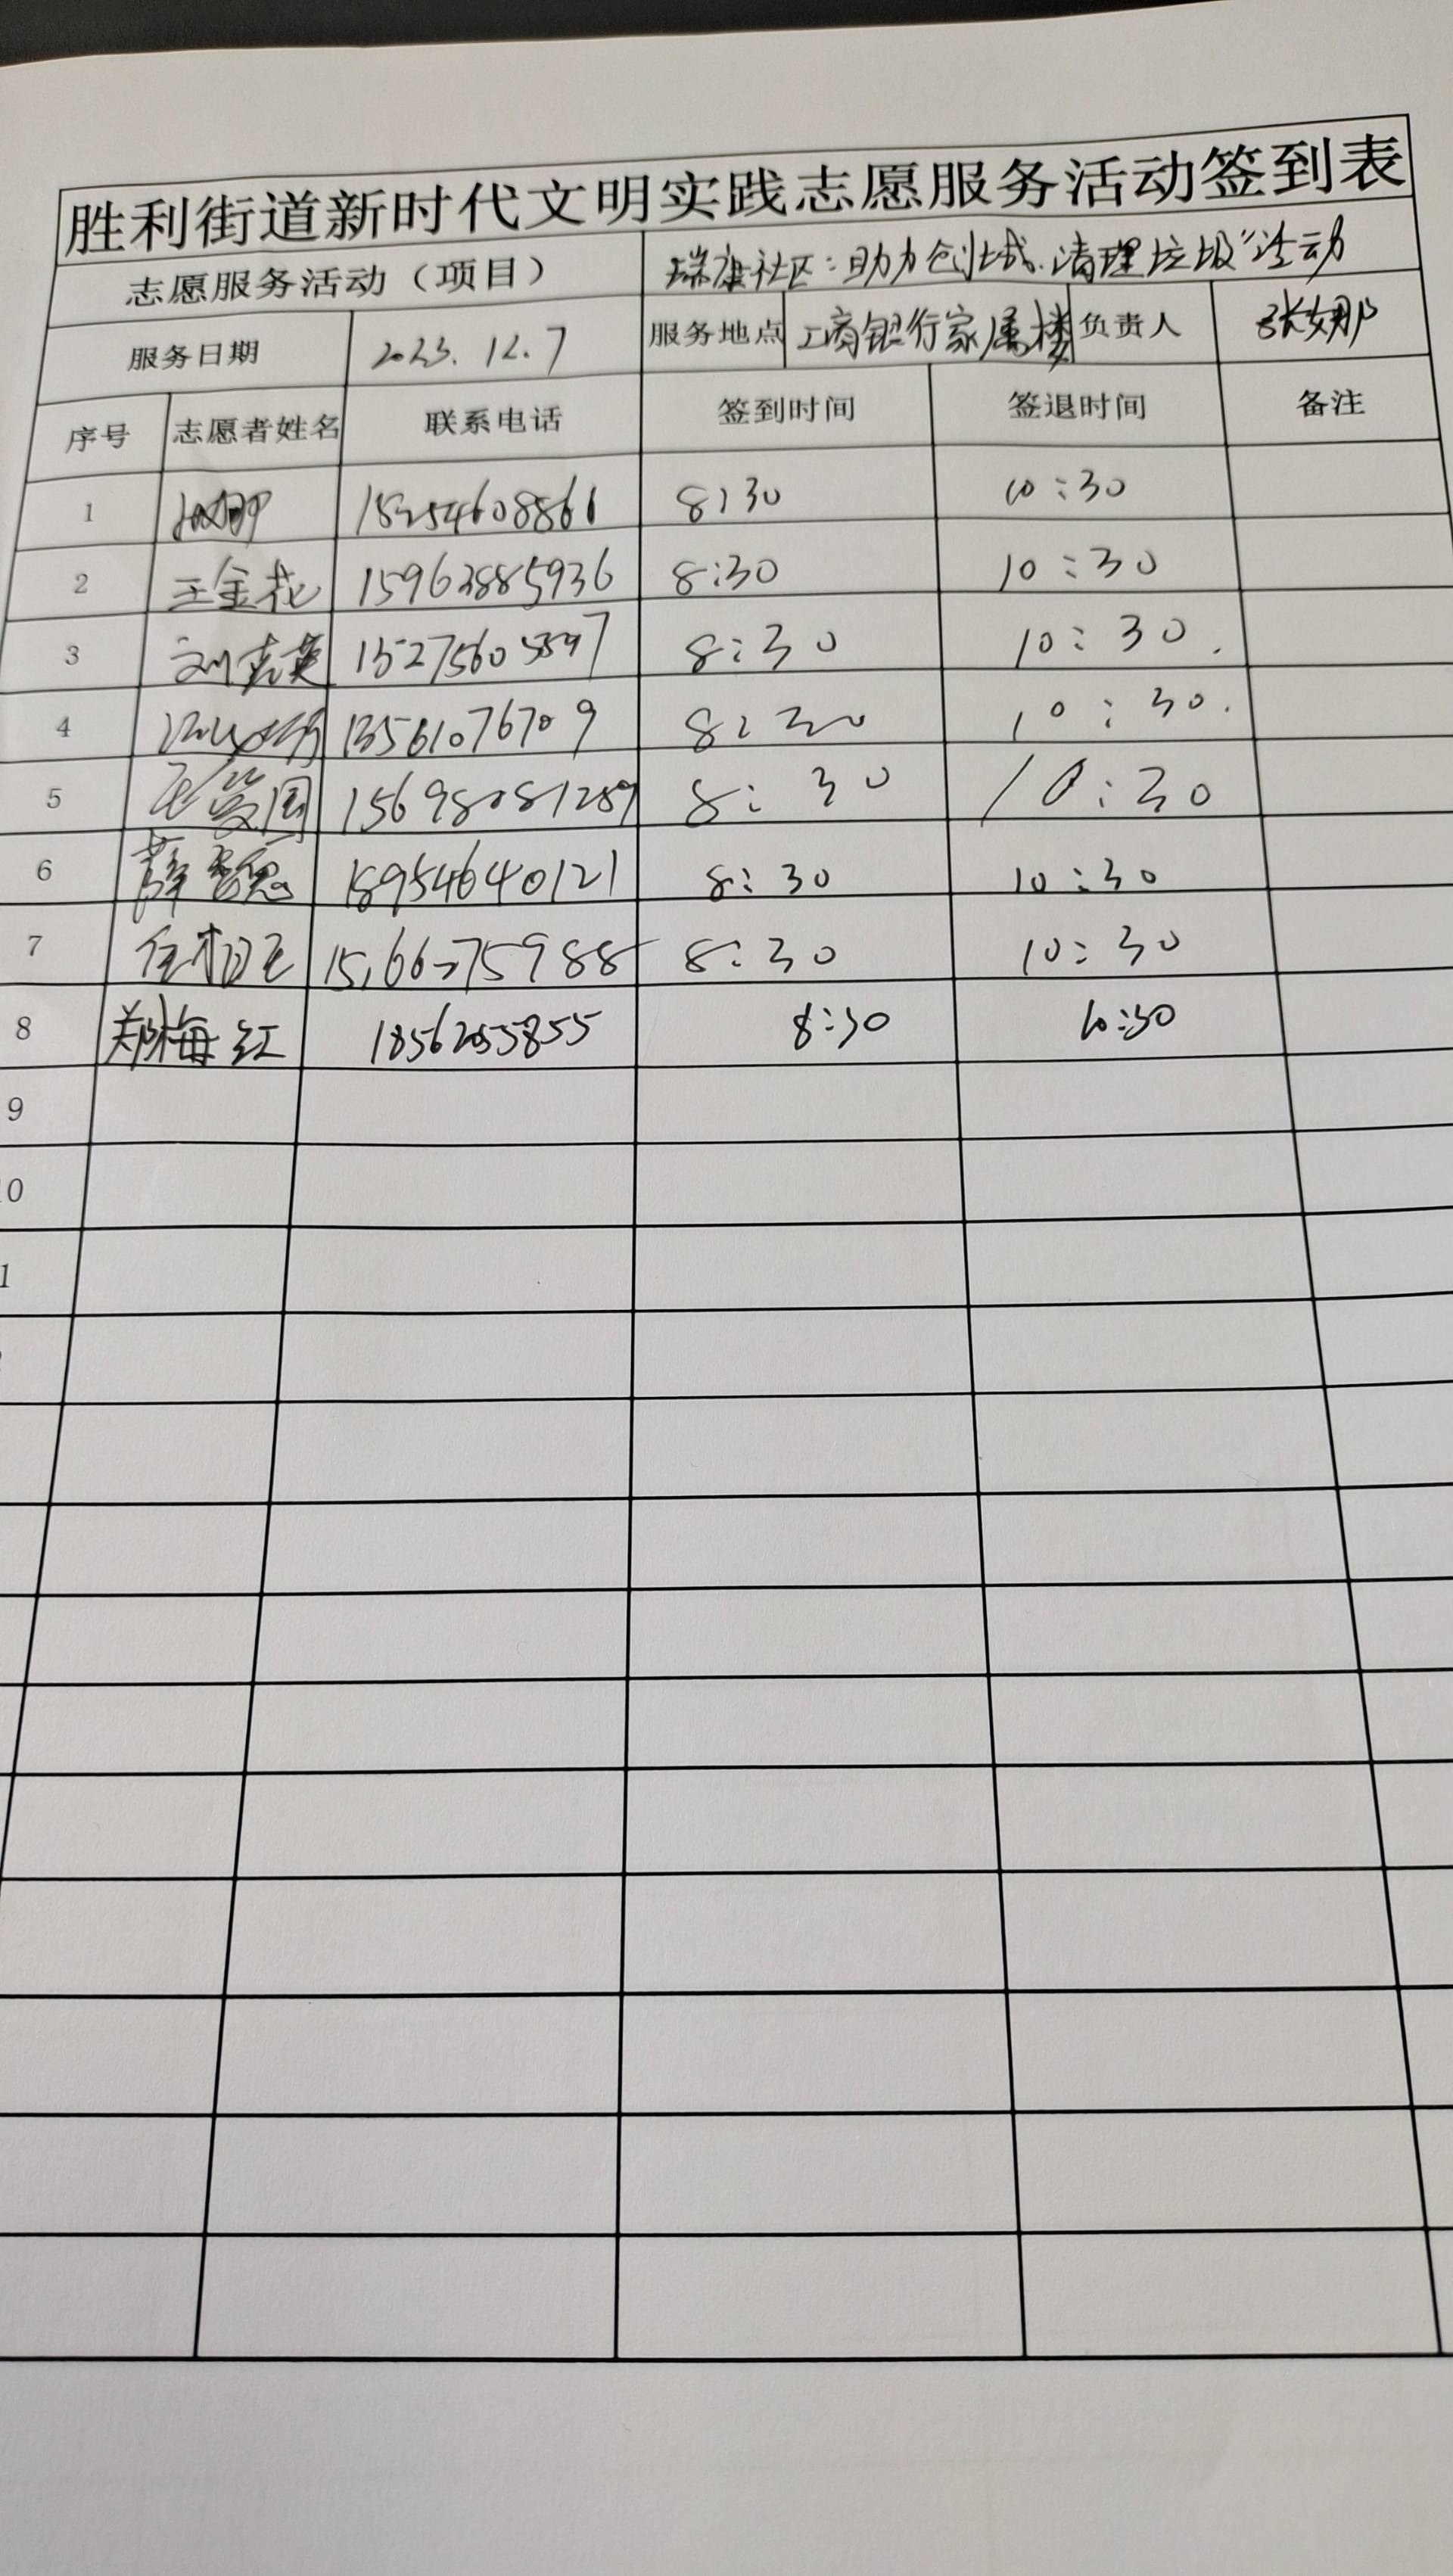 胜利街道新时代文明实践志愿服务活动签到表
志愿服务活动（项目） 瑞康社区:助力创城.清理垃圾"活动
服务日期 2023.12.7 服务地点 工商银行家属楼 负责人 张娜
序号 志愿者姓名 联系电话 签到时间 签退时间 备注
1 15254608861 8:30 10:30
2 王金花 15963885936 8:30 10:30
3 8:30 10:30.
4 13561076709 8:30 10:30.
5 15698081289 8:30 10:30
6 薛 18954640121 8:30 10:30
7 8:30 10:30
8 郑梅红 18562055855 8:30 10:30
9